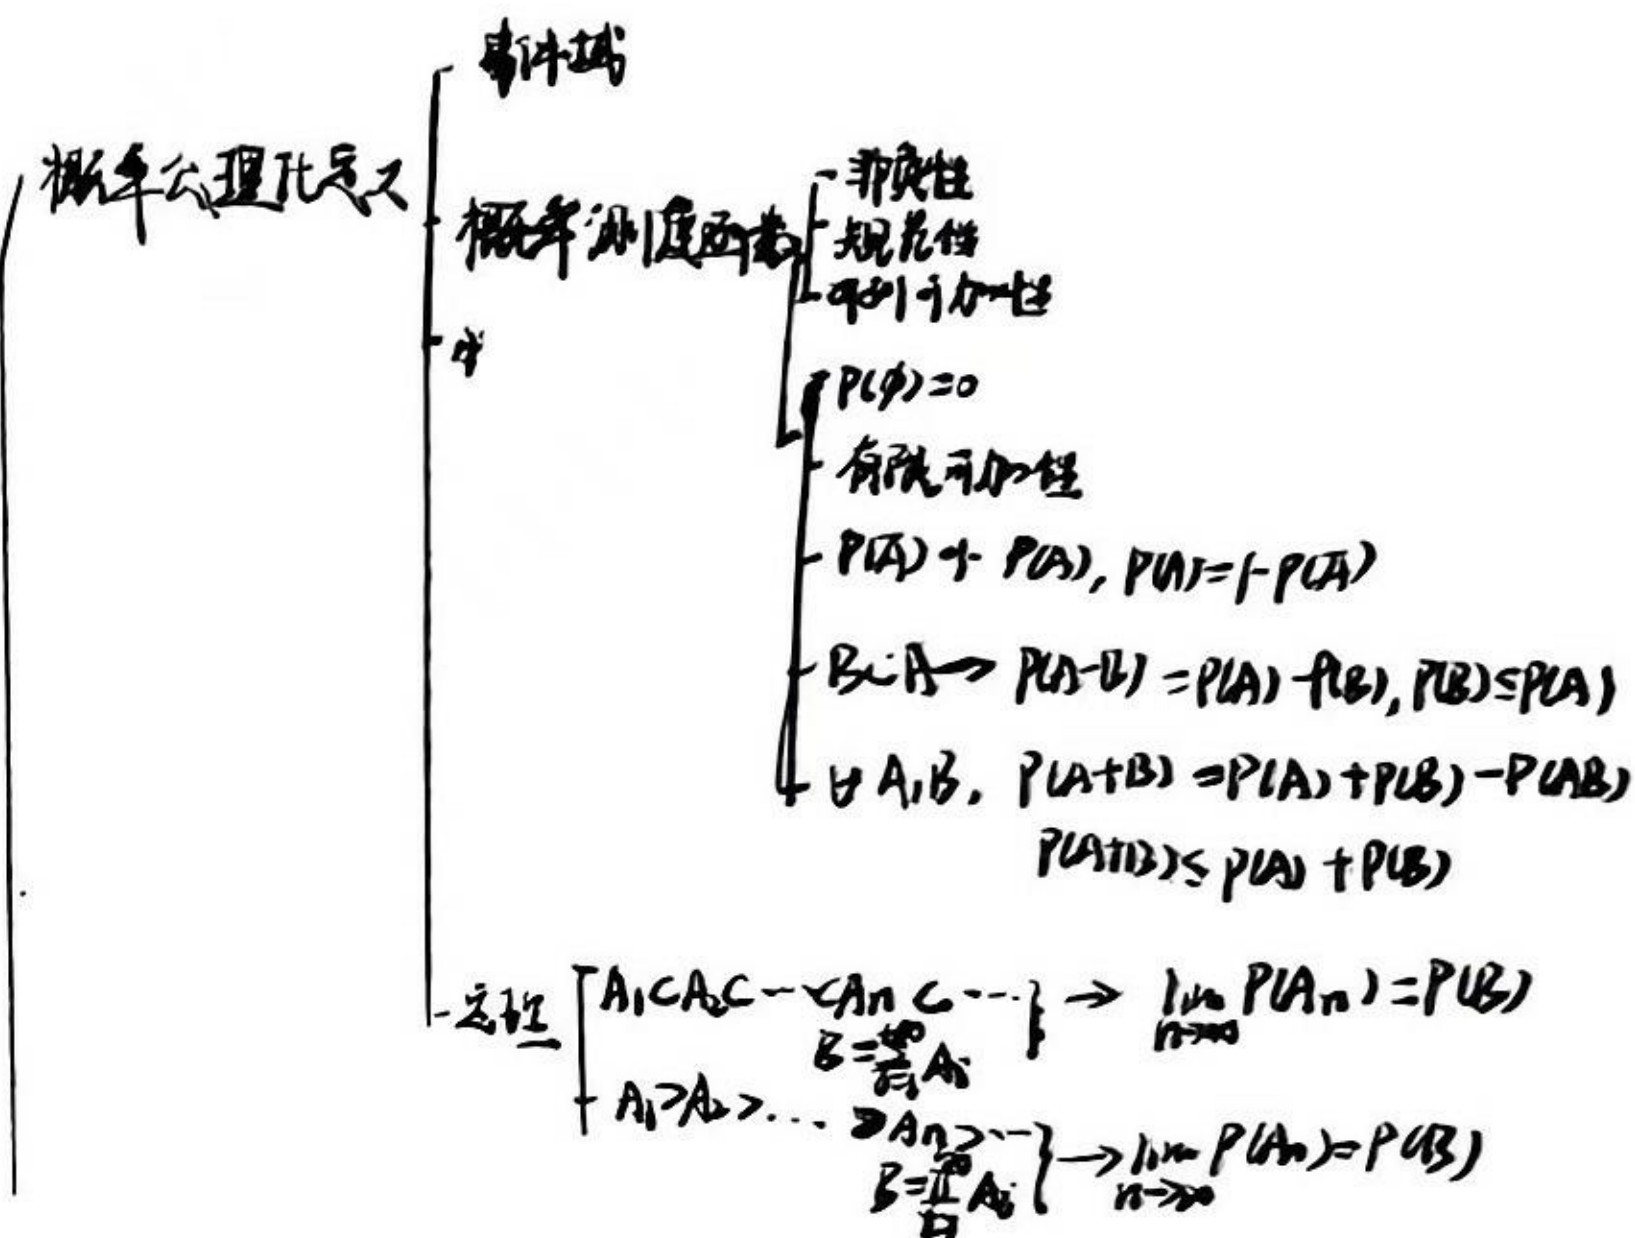 事件域
概率公理化定义
概率测度函数
非负性
规范性
可列可加性
P(∅)=0
有限可加性
P(Ā) + P(A), P(A)=1-P(Ā)
B⊂A→ P(A-B) =P(A)-P(B), P(B)≤P(A)
∀ A,B, P(A+B) =P(A)+P(B)-P(AB)
P(A+B)≤ P(A)+P(B)
定理
A₁⊂A₂⊂…⊂Aₙ⊂…} → lim P(Aₙ)=P(B)
n→∞
B=∑Aᵢ
A₁⊃A₂⊃…⊃Aₙ⊃…
B=∏Aᵢ } → lim P(Aₙ)=P(B)
n→∞